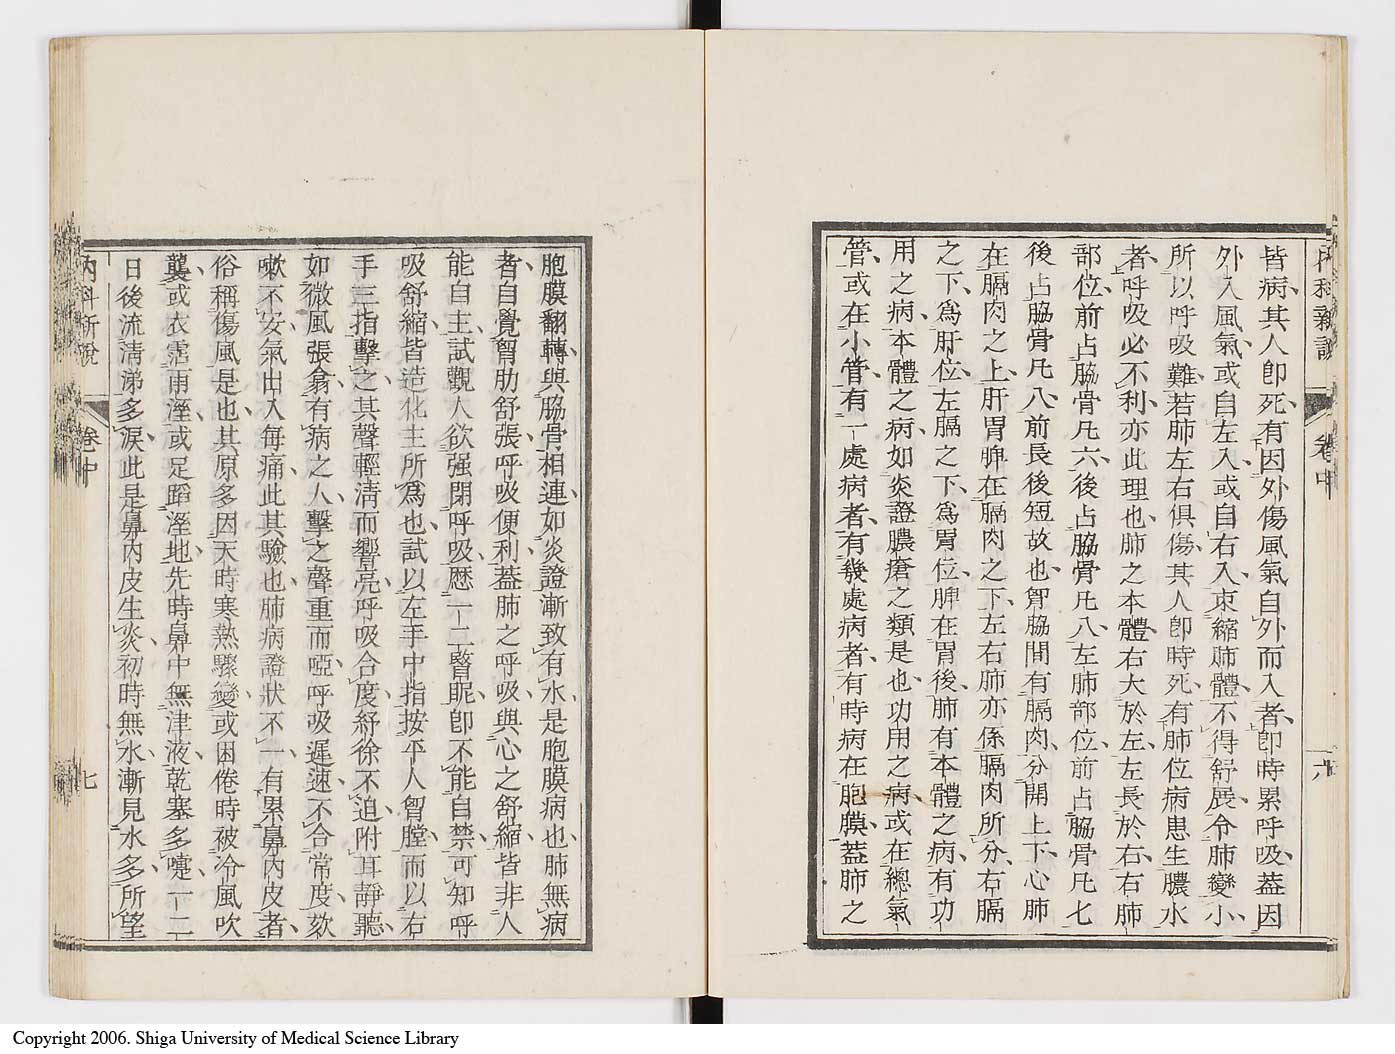 內科新說
卷中
六
皆病其人卽死有因外傷風氣自外而入者卽時累呼吸蓋因
外入風氣或自左入或自右入束縮肺體不得舒展令肺變小
所以呼吸難若肺左右俱傷其人卽時死有肺位病患生膿水
者呼吸必不利亦此理也肺之本體右大於左左長於右右肺
部位前占脇骨凡六後占脇骨凡八左肺部位前占脇骨凡七
後占脇骨凡八前長後短故也胷脇間有膈肉分開上下心肺
在膈肉之上肝胃脾在膈肉之下左右肺亦係膈肉所分右膈
之下爲肝位左膈之下爲胃位脾在胃後肺有本體之病有功
用之病本體之病如炎證膿瘡之類是也功用之病或在總氣
管或在小管有一處病者有幾處病者有時病在胞膜蓋肺之
胞膜翻轉與脇骨相連如炎證漸致有水是胞膜病也肺無病
者自覺胷肋舒張呼吸便利蓋肺之呼吸與心之舒縮皆非人
能自主試觀人欲强閉呼吸歷一二瞀眤卽不能自禁可知呼
吸舒縮皆造化主所爲也試以左手中指按平人胷膛而以右
手三指擊之其聲輕清而響亮呼吸合度紓徐不迫附耳靜聽
如微風張翕有病之人擊之聲重而啞呼吸遲速不合常度欬
嗽不安氣出入每痛此其驗也肺病證狀不一有累鼻內皮者
俗稱傷風是也其原多因天時寒熱驟變或困倦時被冷風吹
襲或衣霑雨溼或足蹈溼地先時鼻中無津液乾塞多嚏一二
日後流清涕多淚此是鼻內皮生炎初時無水漸見水多所望
內科新說
卷中
七
Copyright 2006. Shiga University of Medical Science Library